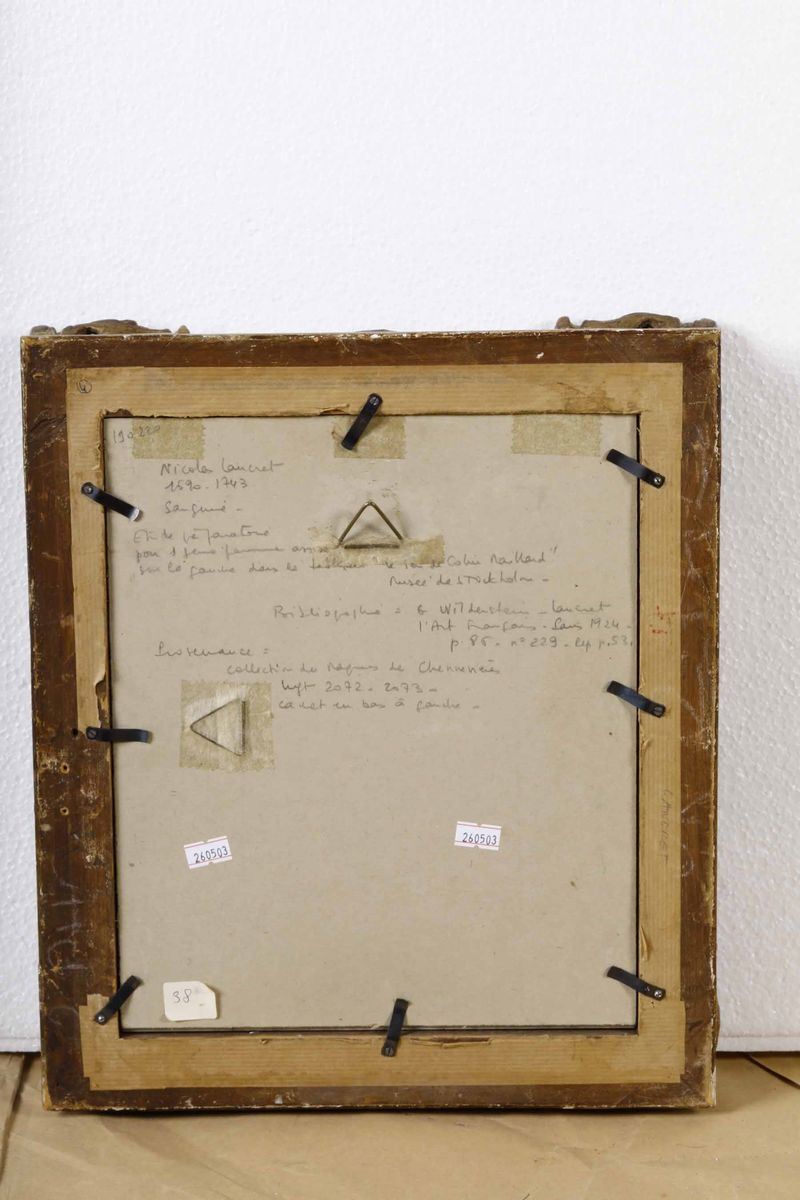 190220
Nicolas Lancret
1590 - 1743
Sanguine -
Etude préparatoire
pour 1 jeune femme assise
"sur la gauche dans le tableau "le jeu de Colin Maillard"
Musée de Stockholm -
Bibliographie = G Wildenstein - Lancret
l'Art Français - Paris 1924 -
p. 85 - n° 229 - rep p. 53.
Provenance =
collection du Marquis de Chennevières
lugt 2072 - 2073 -
cachet en bas à gauche -
LANCRET
260503
260503
38